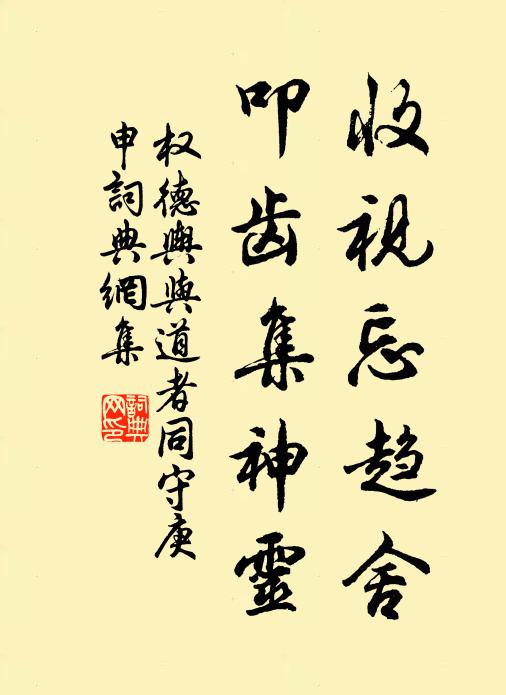 收视忘趋舍
叩齿集神靈
权德舆與道者同守庚
申詞典網集
詞典网印